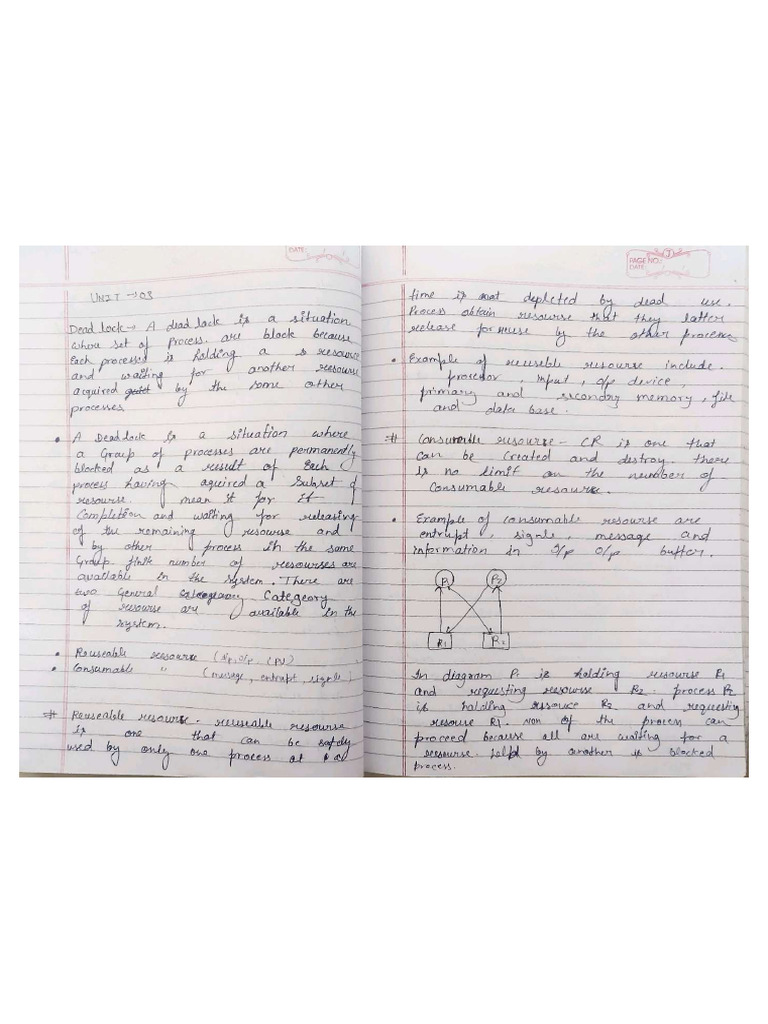 DATE:
UNIT → 03
Dead lock → A dead lock is a situation
where set of process. are block because
Each processed is holding a resource
and waiting for another resource
acquired by the some other
processes
• A Dead lock is a situation where
a Group of processes are permanently
blocked as a result of Each
process having aquired a subset of
resourse. mean it for it
Completion and waiting for releasing
of the remaining resourse and
by other process in the same
Group. finit number of resourses are
available in the system. There are
two General Categeory
of resourse are available in the
system.
• Reuseable resourse (I/p, o/p, CPU)
• Consumable " (message, entrupt, signle)
# Reuseable resourse. reuseable resourse
is one that can be safely
used by only one process at a
PAGE NO.:
DATE:
time is not depleted by dead use.
Process obtain resourse that they latter
release for reuse by the other process
• Example of reuseble resourse include.
procesor, input, o/p device,
primary and secondry memory, file
and data base.
# Consumable resourse - CR is one that
can be created and destroy. there
is no limit on the number of
Consumable resourse.
• Example of consumable resourse are
entrupt, signle, message and
information in I/p O/p buffer.
P1 P2
R1 R2
In diagram P1 is holding resourse R1
and requesting resourse R2. process P2
is holding resource R2 and requesting
resourse R1. non of the process can
proceed because all are waiting for a
resourse. held by another is blocked
process.